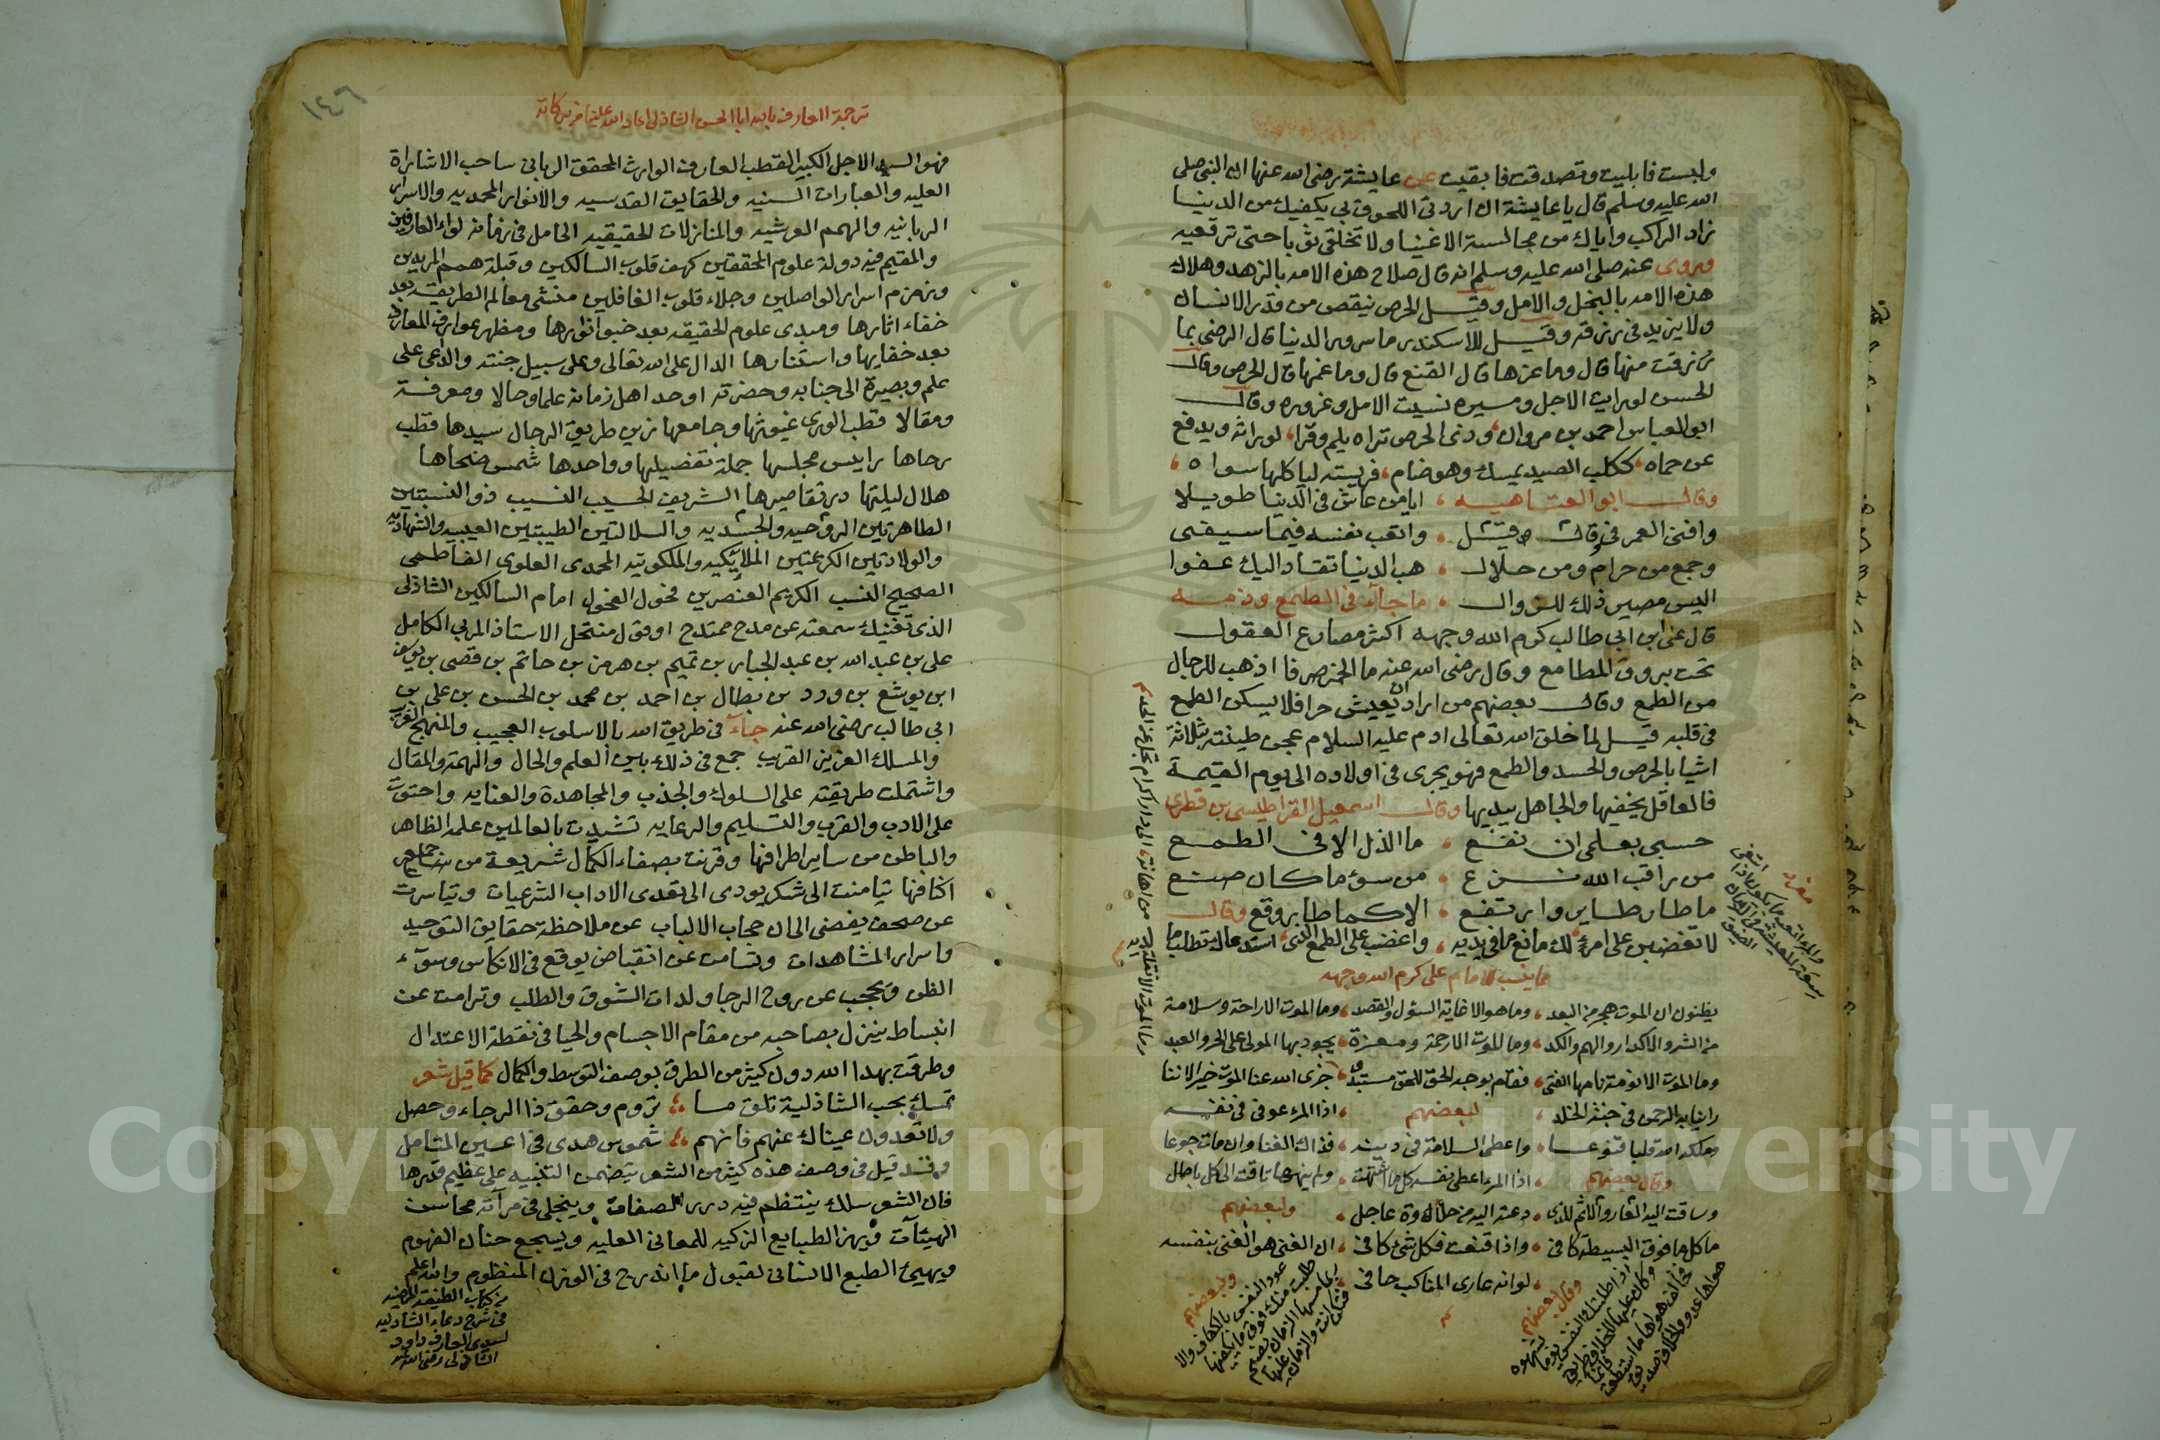 ولبست فابليت وتصدقت فابقيت عن عايشة رضي الله عنها ان النبي صلى
الله عليه وسلم قال يا عايشة ان اردتي اللحوق بي يكفيك من الدنيا
زاد الراكب واياك من مجالسة الاغنيا ولا تخلقي ثوبا حتى ترقعيه
ويروى عنه صلى الله عليه وسلم انه قال صلاح هذه الامه بالزهد وهلاك
هذه الامه بالبخل والامل وقيل الحرص ينقص من قدر الانسان
ولا يزيد في رزقه وقيل للاسكندر ما سرور الدنيا قال الرضى بما
رزقت منها قال وما عزها قال القنع قال وما غمها قال الحرص وقال
الحسن لو رايت الاجل ومسيره نسيت الامل وغروره وقال
ابو العباس احمد بن مروان وذى الحرص تراه يلم وفرا لوراثه ويدفع
عن حماه ككلب الصيد يمسك وهو ضام فريسته لياكلها سواه
وقال ابو العتاهيه ايا من عاش في الدنيا طويلا
وافنى العمر في قال وقيل واتعب نفسه فيما سيفنى
وجمع من حرام ومن حلال هب الدنيا تقاد اليك عفوا
اليس مصير ذلك للزوال ما جاء في الطمع وذمه
قال علي ابن ابي طالب كرم الله وجهه اكثر مصارع العقول
تحت بروق المطامع وقال رضي الله عنه ما الخمر صرفا اذهب للرجال
من الطمع وقال بعضهم من اراد ان يعيش حرا فلا يسكن الطمع
في قلبه قيل لما خلق الله تعالى ادم عليه السلام عجن طينته بثلاثة
اشيا بالحرص والحسد والطمع فهو يجرى في اولاده الى يوم القيمة
فالعاقل يخفيها والجاهل يبديها وقال اسمعيل القراطيسي بن قطرى
حسبى بعلمى ان نفع ما الذل الا فى الطمع
من راقب الله نزع من سوء ما كان صنع
ما طار طاير وارتفع الا كما طار وقع وقال
لا تغضبن على امرئ لك مانع ما في يديه واغضب على الطمع الذى استدعاك تطلب ما
مما ينسب للامام على كرم الله وجهه
يظنون ان الموت هجر من البعد وما هو الا غاية السؤل والقصد وما الموت الا راحة وسلامة
من الشر والاكدار والهم والكد وما الموت الا رحمة ومعزة يجود بها المولى على الحر والعبد
وما الموت الا نومة نامها الفتى فقام بوجد الحق للحق جزى الله عنا الموت خيرا لاننا
راينا به الرحمن في جنة الخلد لبعضهم اذا المرء عوفى فى نفسه
وملكه الله قلبا قنوعا واعطى السلامة فى دينه فذاك الغنا وان مات جوعا
وقال بعضهم اذا المرء اعطى نفسه كل ما اشتهت ولم ينهها تاقت الى كل باطل
وساقت اليه العار والاثم للذى دعته اليه من حلاوة عاجل ولبعضهم
ما كل ما فوق البسيطة كافى واذا قنعت فكل شئ كافى ان الغنى هو الغنى بنفسه
لو انه عارى المناكب حافى وقال بعضهم
مفرد
ولبعضهم
١٤٦
ترجمة العارف بالله ابا الحسن الشاذلى اعاد الله علينا من بركاته
فهو السيد الاجل الكبير القطب العارف الوارث المحقق الربانى صاحب الاشارة
العليه والعبارات السنيه والحقايق القدسيه والانوار المحمديه والاسرار
الربانيه والهمم العرشيه والمنازلات الحقيقيه الحامل فى زمانه لواء العارفين
والمقيم فيه دولة علوم المحققين كهف قلوب السالكين وقبلة همم المريدين
وزمزم اسرار الواصلين وجلاء قلوب الغافلين منشى معالم الطريقه بعد
خفاء اثارها ومبدى علوم الحقيقه بعد خبو انوارها ومظهر عوارف المعارف
بعد خفايها واستتارها الدال على الله تعالى وعلى سبيل جنته والداعى على
علم وبصيرة الى جنابه وحضرته اوحد اهل زمانه علما وحالا ومعرفة
ومقالا قطب الورى غيوثها وجامعها زين طريق الرجال سيدها قطب
رحاها رايس مجلسها جملة تفضيلها وواحدها شمس ضحاها
هلال ليلتها در تقاصيرها الشريف الحسيب النسيب ذو النسبتين
الطاهرتين الروحيه والجسديه والسلالتين الطيبتين الغيبيه والشهاديه
والولادتين الكريمتين الملائكيه والملكوتيه المحمدى العلوى الفاطمى
الصحيح النسب الكريم العنصرين فحول الفحول امام السالكين الشاذلى
الذى تغنيك سمعته عن مدح ممتدح او قول منتحل الاستاذ المربى الكامل
على بن عبد الله بن عبد الجبار بن تميم بن هرمز بن حاتم بن قصى بن يوسف
ابن يوشع بن ورد بن بطال بن احمد بن محمد بن الحسن بن على بن
ابى طالب رضى الله عنه جاء فى طريق الله بالاسلوب العجيب والمنهج الغريب
والمسلك العزيز القريب جمع فى ذلك بين العلم والحال والهمة والمقال
واشتملت طريقته على السلوك والجذب والمجاهدة والعنايه واحتوت
على الادب والقرب والتسليم والرعايه تشيدت بالعالمين علمه الظاهر
والباطن من ساير اطرافها وقرنت بصفاء الكمال شريعة من جميع
اكنافها تيامنت الى شكر يودى الى تعدى الاداب الشرعيات وتياسرت
عن صحو يفضى الى ان حجاب الالباب عن ملاحظة حقايق التوحيد
واسرار المشاهدات وتسامت عن انقباض يوقع فى الانكاس وسوء
الظن ويحجب عن روح الرجا ولدات الشوق والطلب وترامت عن
انبساط ينزل بصاحبه من مقام الاجسام والحيا فى نقطة الاعتدال
وطرقت بهدا الله دون كثير من الطرق بوصف التوسط والكمال كما قيل شعر
تمسك بحب الشاذلية تلق ما تروم وحقق ذا الرجاء وحصل
ولا تعدون عيناك عنهم فانهم شموس هدى فى اعين المتامل
وقد قيل فى وصف هذه كثير من الشعر يتضمن التنبيه على عظيم قدرها
فان الشعر سلك ينتظم فيه درر الصفات وينجلى فى مرآته محاسن
الهيئات ويهز الطبايع الزكيه للمعانى العليه ويسجع حنان الفهوم
ويهيئ الطبع الانسانى لقبول ما اندرج فى الوزن المنظوم والله اعلم
من كتاب اللطيفة المرضيه
فى شرح دعاء الشاذليه
لسيدى العارف داود
الشاذلى رضى الله عنه
Copyright © King Saud University
1957